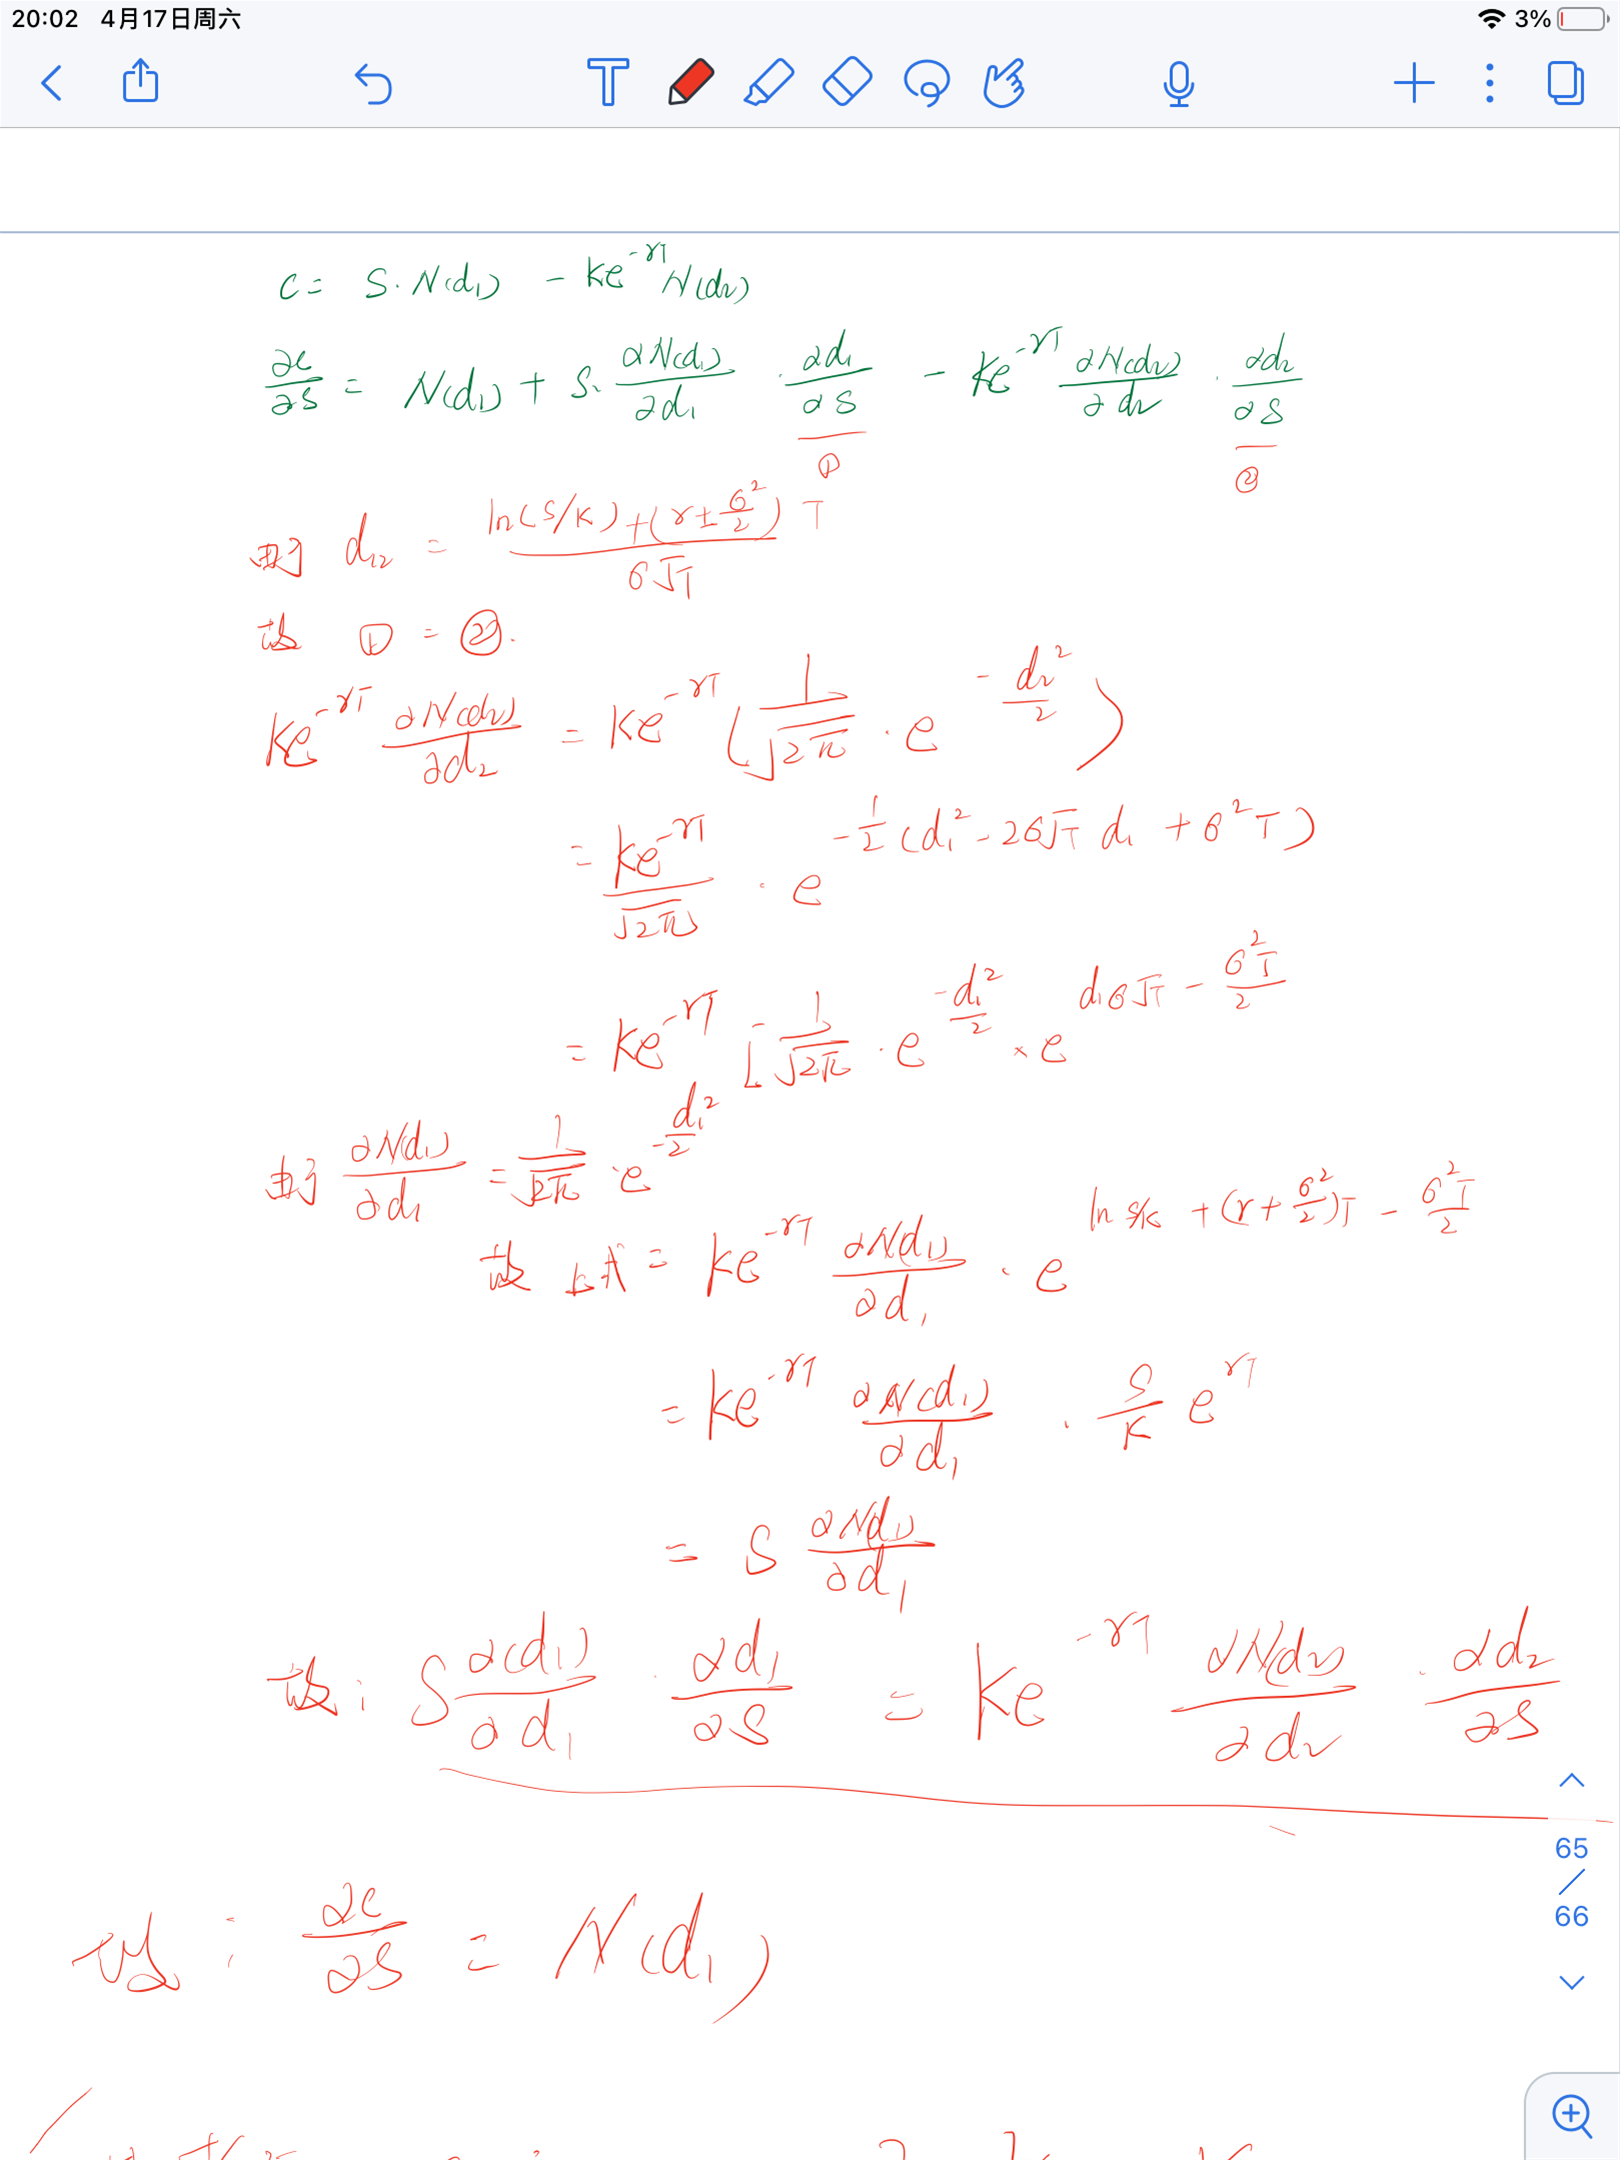 20:02 4月17日周六 3%
C = S·N(d₁) - Ke^{-rT}N(d₂)
∂C/∂S = N(d₁) + S·∂N(d₁)/∂d₁ · ∂d₁/∂S - Ke^{-rT} ∂N(d₂)/∂d₂ · ∂d₂/∂S
① ②
由于 d₁₂ = ln(S/K)+(r±σ²/2)T / σ√T
故 ① = ②.
Ke^{-rT} ∂N(d₂)/∂d₂ = Ke^{-rT} (1/√2π · e^{-d₂²/2})
= Ke^{-rT}/√2π · e^{-1/2(d₁²-2σ√T d₁+σ²T)}
= Ke^{-rT} [1/√2π · e^{-d₁²/2} × e^{d₁σ√T - σ²T/2}
由于 ∂N(d₁)/∂d₁ = 1/√2π · e^{-d₁²/2}
故 上式 = Ke^{-rT} ∂N(d₁)/∂d₁ · e^{ln S/K + (r+σ²/2)T - σ²T/2}
= Ke^{-rT} ∂N(d₁)/∂d₁ · S/K e^{rT}
= S ∂N(d₁)/∂d₁
故: S ∂(d₁)/∂d₁ · ∂d₁/∂S = Ke^{-rT} ∂N(d₂)/∂d₂ · ∂d₂/∂S
65
/
66
故: ∂C/∂S = N(d₁)